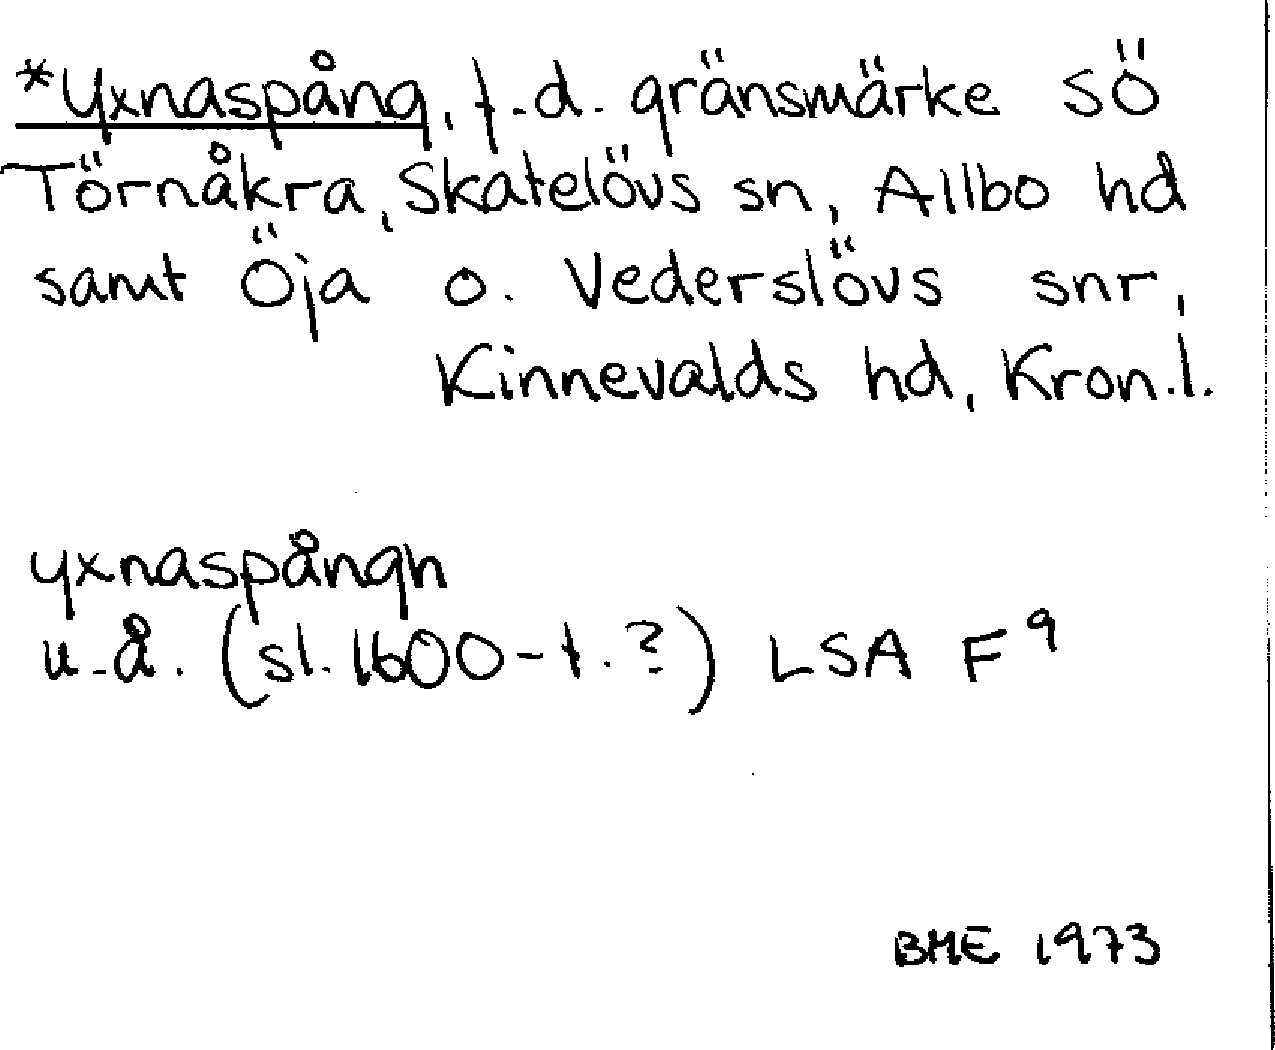 *Yxnaspång, f.d. gränsmärke SÖ
Törnåkra, Skatelövs sn, Allbo hd
samt Öja o. Vederslövs snr,
Kinnevalds hd, Kron.l.
yxnaspångh
u.å. (sl. 1600-t.?) LSA F⁹
BME 1973